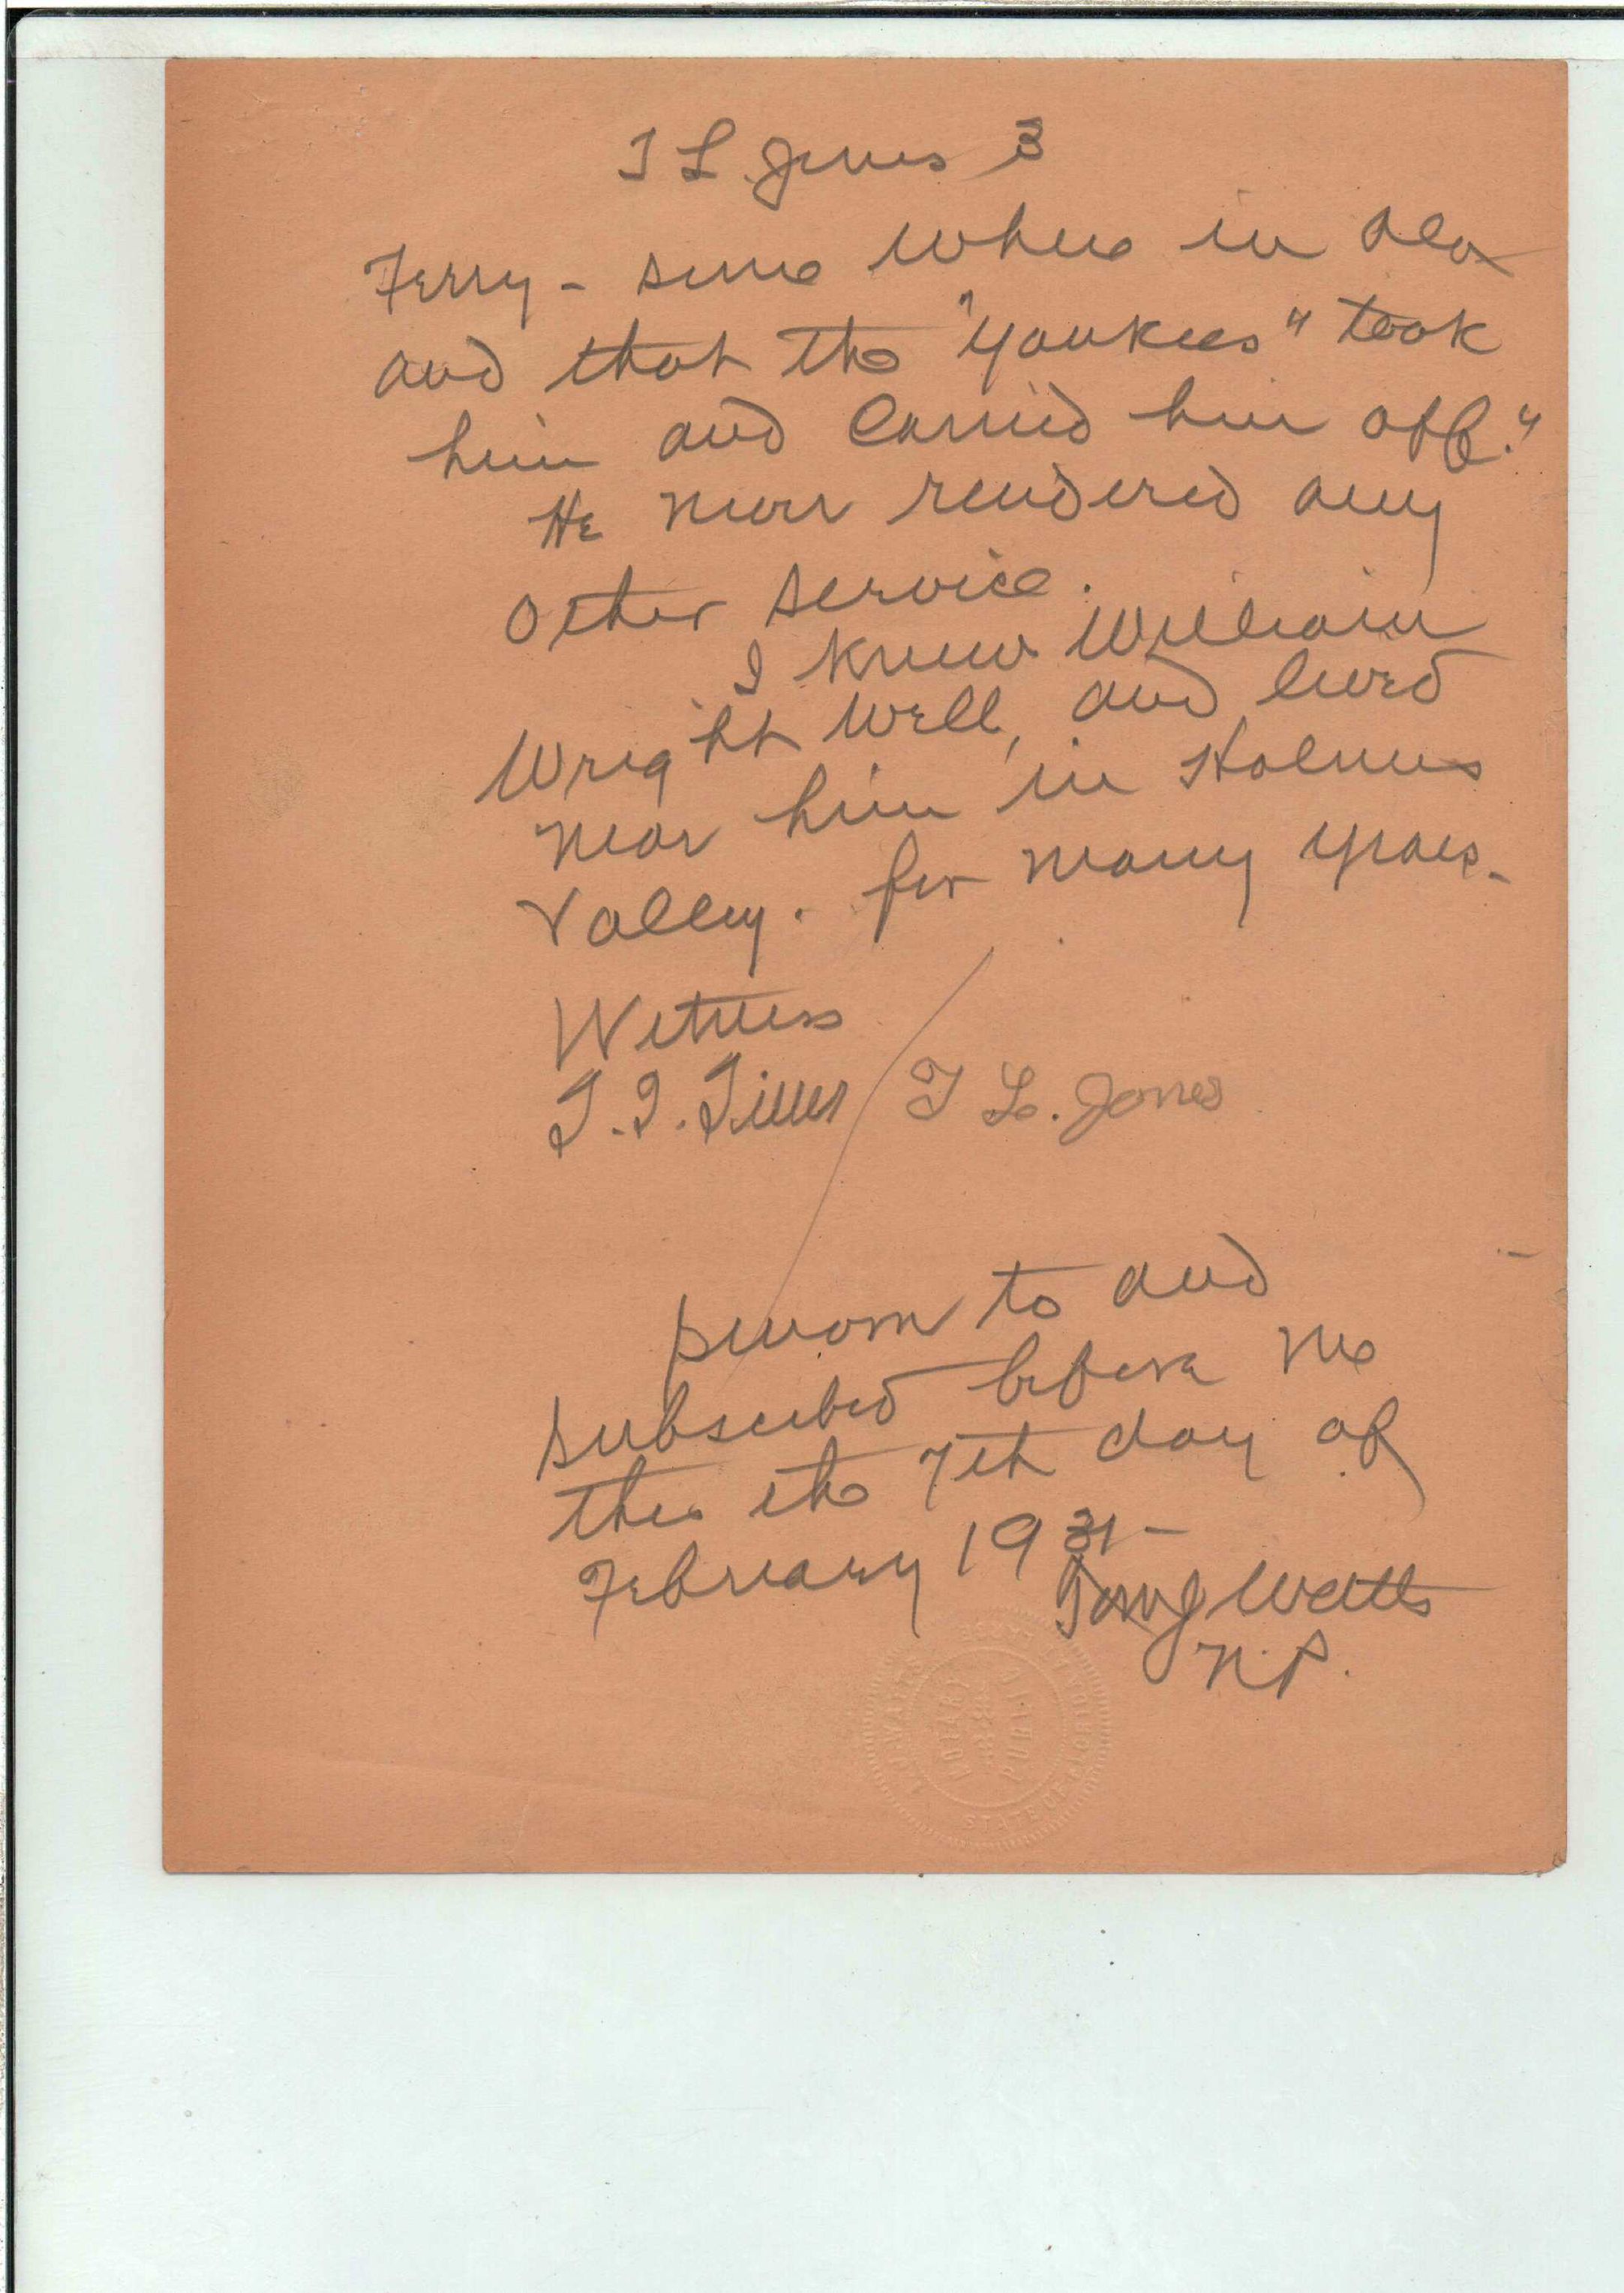 T L. Jones 3
Ferry - some where in Ala
and that the "Yankees" took
him and carried him off."
He never rendered any
other service.
I knew William
Wright well, and lived
near him in Holmes
Valley. for many years.
Witness
T. J. / T L. Jones
Sworn to and
subscribed before me
this the 7th day of
February 1931-
Watts
N.P.
NOTARY
PUBLIC
STATE OF FLORIDA